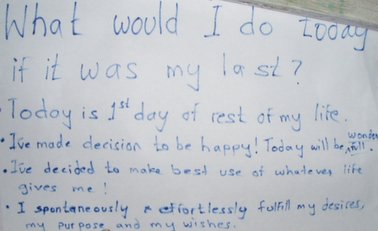 What would I do today
if it was my last?
Today is 1st day of rest of my life.
• Ive made decision to be happy! Today will be wonderfull.
• Ive decided to make best use of whatever life
gives me!
• I spontaneously & effortlessly fulfill my desires,
my purpose and my wishes.